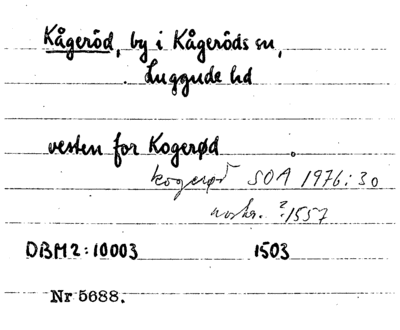 Kågeröd, by i Kågeröds sn,
Luggude hd
vesten for Kogerød
kogerød SOA 1976:30
avskr. ?1557
DBM2:10003 1503
Nr 5688.